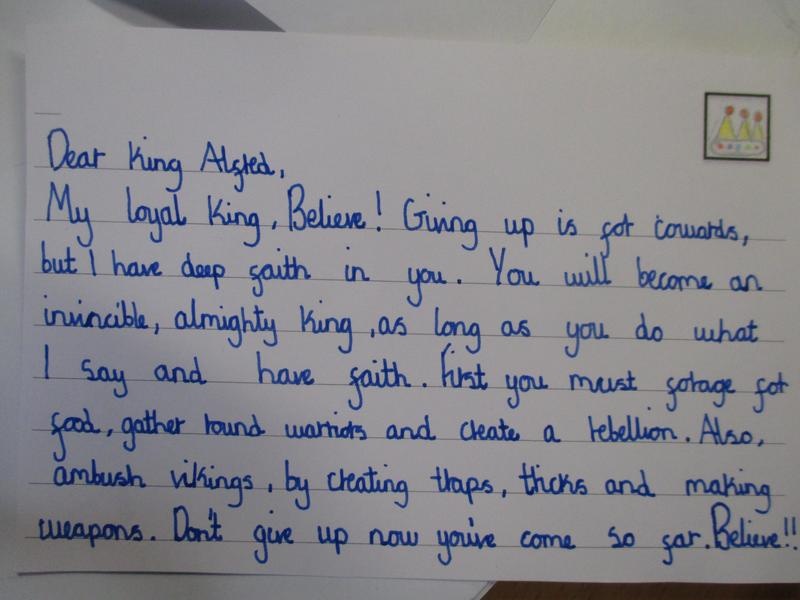 Dear King Alfred,
My loyal King, Believe! Giving up is for cowards,
but I have deep faith in you. You will become an
invincible, almighty King, as long as you do what
I say and have faith. First you must forage for
food, gather round warriors and create a rebellion. Also,
ambush vikings, by creating traps, tricks and making
weapons. Don't give up now you've come so far. Believe!!